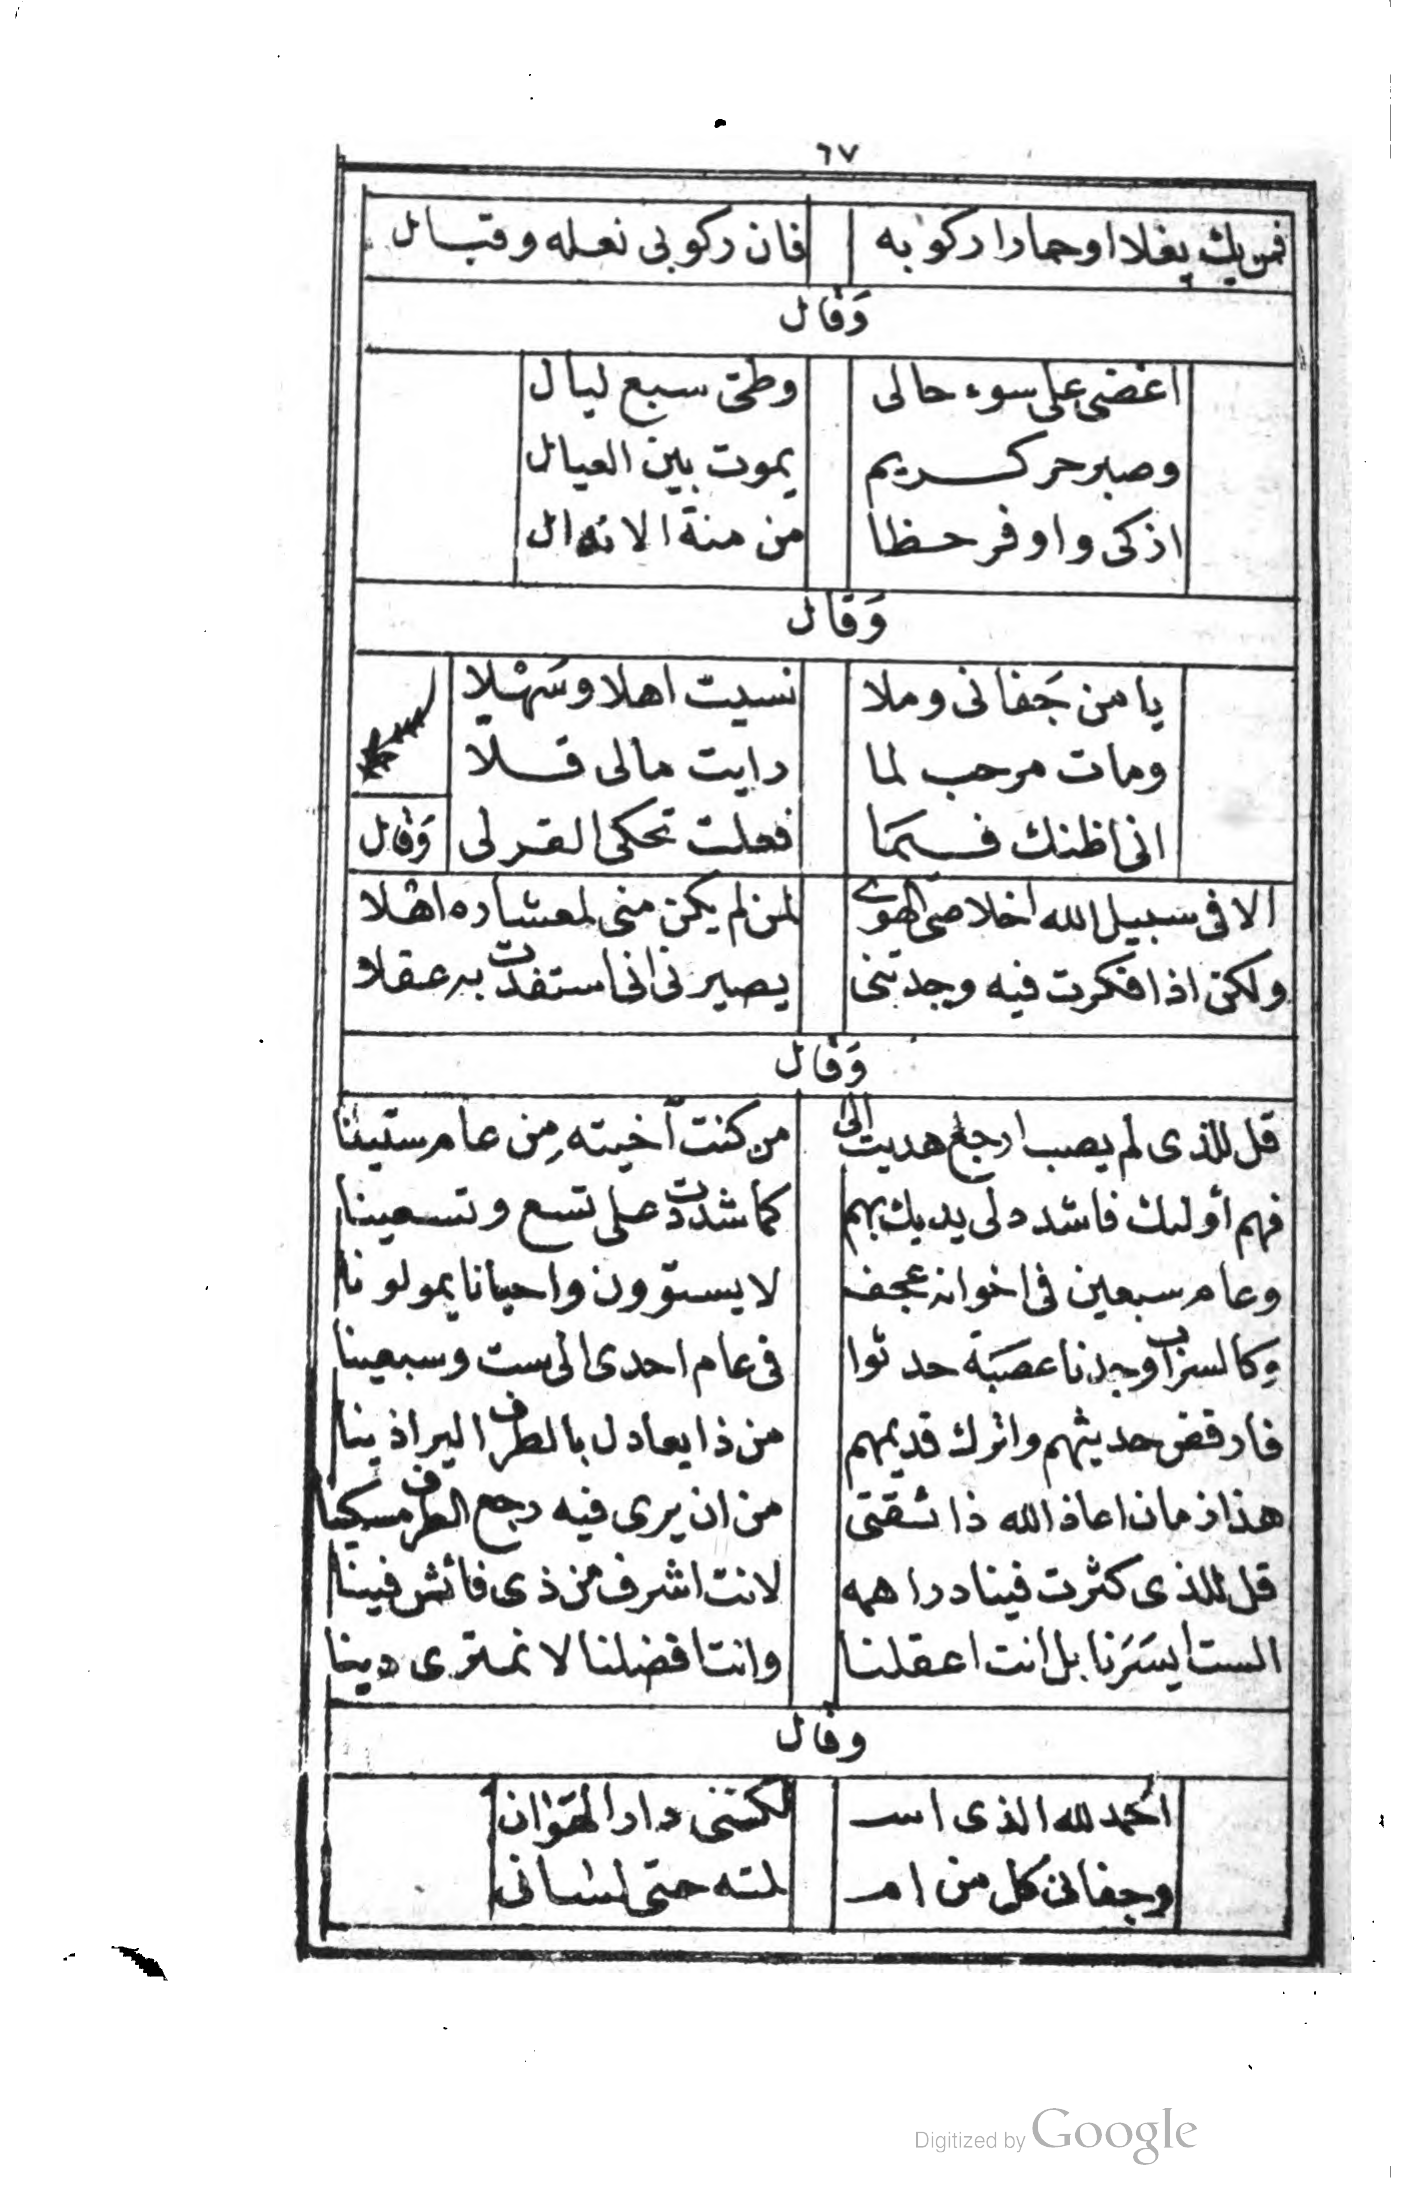 ٦٧
فمن يك بغلا او حمارا ركوبه فان ركوبى نعله وقبال
وَقال
اغضى على سوء حالى وطى سبع ليال
وصبر حر كريم يموت بين العيال
اذكى واوفر حظا من منة الانذال
وَقال
يا من جَفانى وملا نسيت اهلا وسَهْلا
ومات مرحب لما رايت مالى قلّا
انى اظنك فيمَا فعلت تحكى القرلى
وَقال
الا فى سبيل الله اخلاصى الهوى لمن لم يكن منى لمعشاره اهْلا
ولكنى اذا فكرت فيه وجدتنى يصيرنى انى استفدت به عقلا
وَقال
قل للذى لم يصب ارجع هديت الى من كنت آخيته مِن عام ستينا
فهم أولئك فاشدد لى يديك بهم كما شددت على تسع وتسعينا
وعام سبعين فى اخوانه عجف لا يستوون واحيانا يمولونا
وكالسراب وجدنا عصَبَة حدثوا فى عام احدى الى ست وسبعينا
فارفض حديثهم واترك قديمهم من ذا يعادل بالطرف البراذينا
هذا زمان اعاذ الله ذا ثقتى من ان يرى فيه رجع الطرف مسكينا
قل للذى كثرت فينا دراهمه لانت اشرف من ذى فائش فينا
الست ايسَرَنا بل انت اعقلنا وانت افضلنا لا نمترى دينا
وقال
الحمد لله الذى اسـ ـكننى دار الهَوَان
وجفانى كل من امـ ـلته حتى لسانى
Digitized by Google